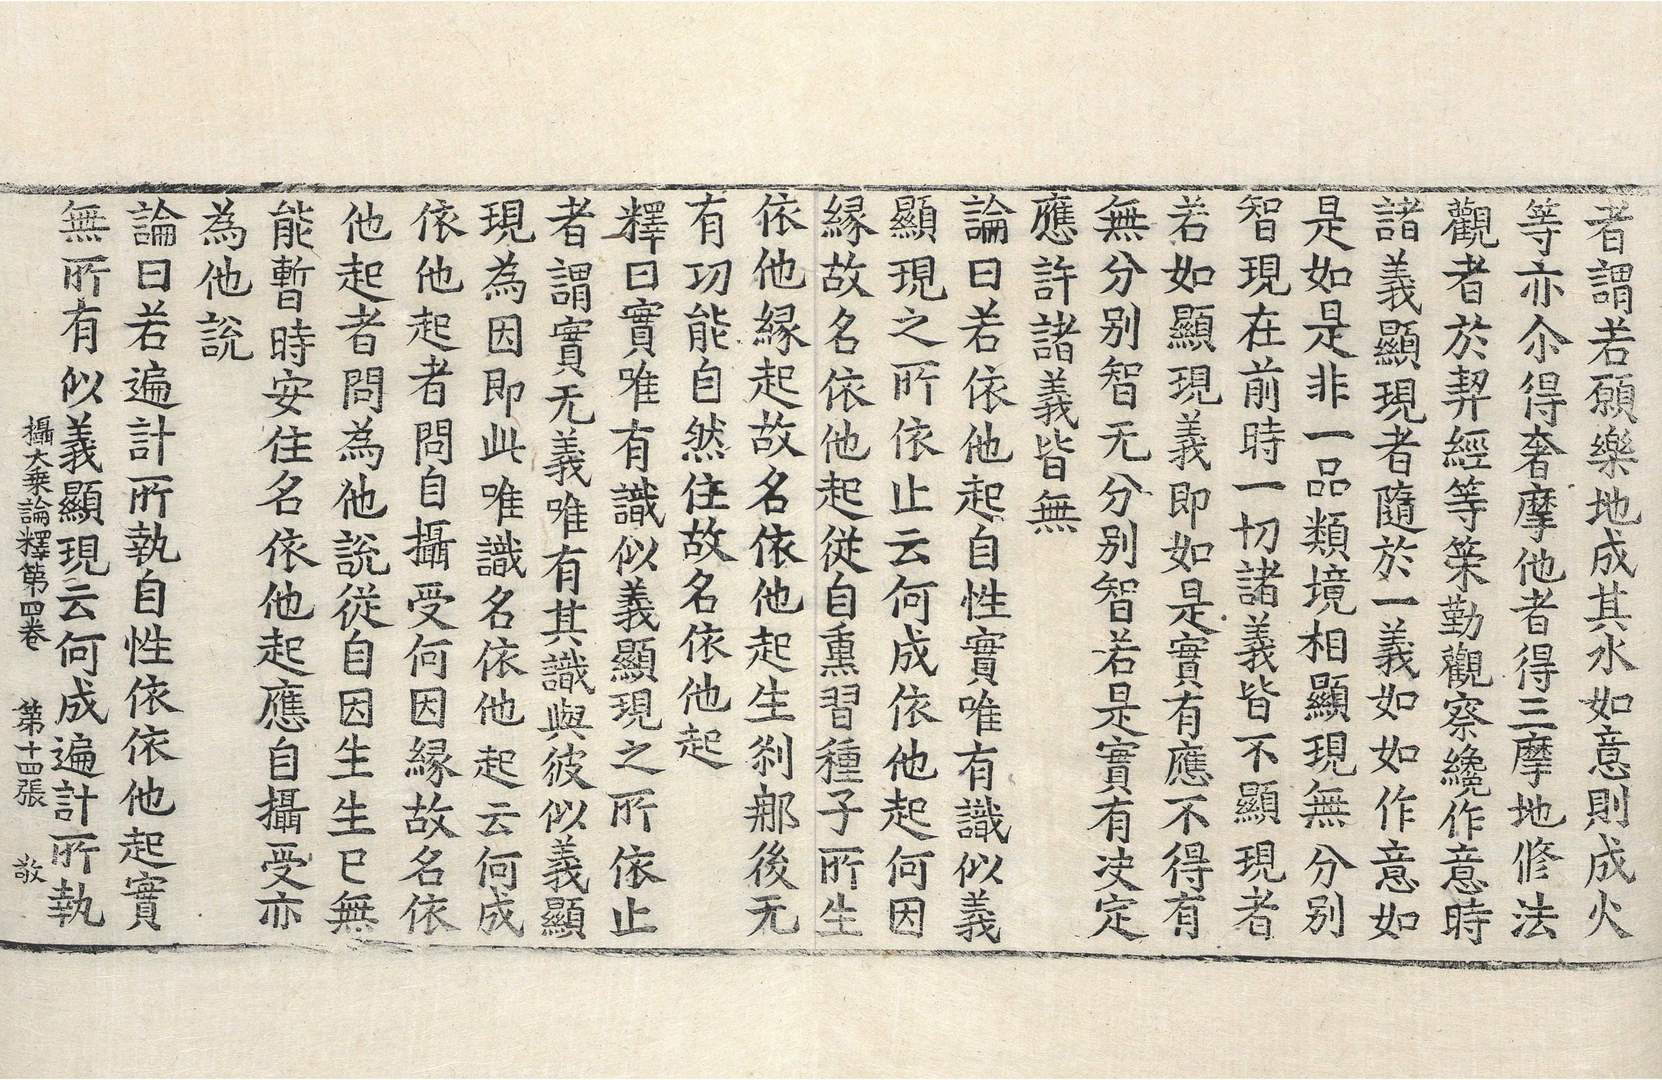 者謂若願樂地成其水如意則成火
等亦尒得奢摩他者得三摩地修法
觀者於契經等䇿勤觀察纔作意時
諸義顯現者隨於一義如如作意如
是如是非一品類境相顯現無分別
智現在前時一切諸義皆不顯現者
若如顯現義即如是實有應不得有
無分別智无分別智若是實有決定
應許諸義皆無
論曰若依他起自性實唯有識似義
顯現之所依止云何成依他起何因
縁故名依他起從自熏習種子所生
依他縁起故名依他起生刹那後无
有功能自然住故名依他起
釋曰實唯有識似義顯現之所依止
者謂實无義唯有其識與彼似義顯
現為因即此唯識名依他起云何成
依他起者問自攝受何因縁故名依
他起者問為他說從自因生生已無
能暫時安住名依他起應自攝受亦
為他說
論曰若遍計所執自性依依他起實
無所有似義顯現云何成遍計所執
攝大乗論釋第四卷　第十四張　敬